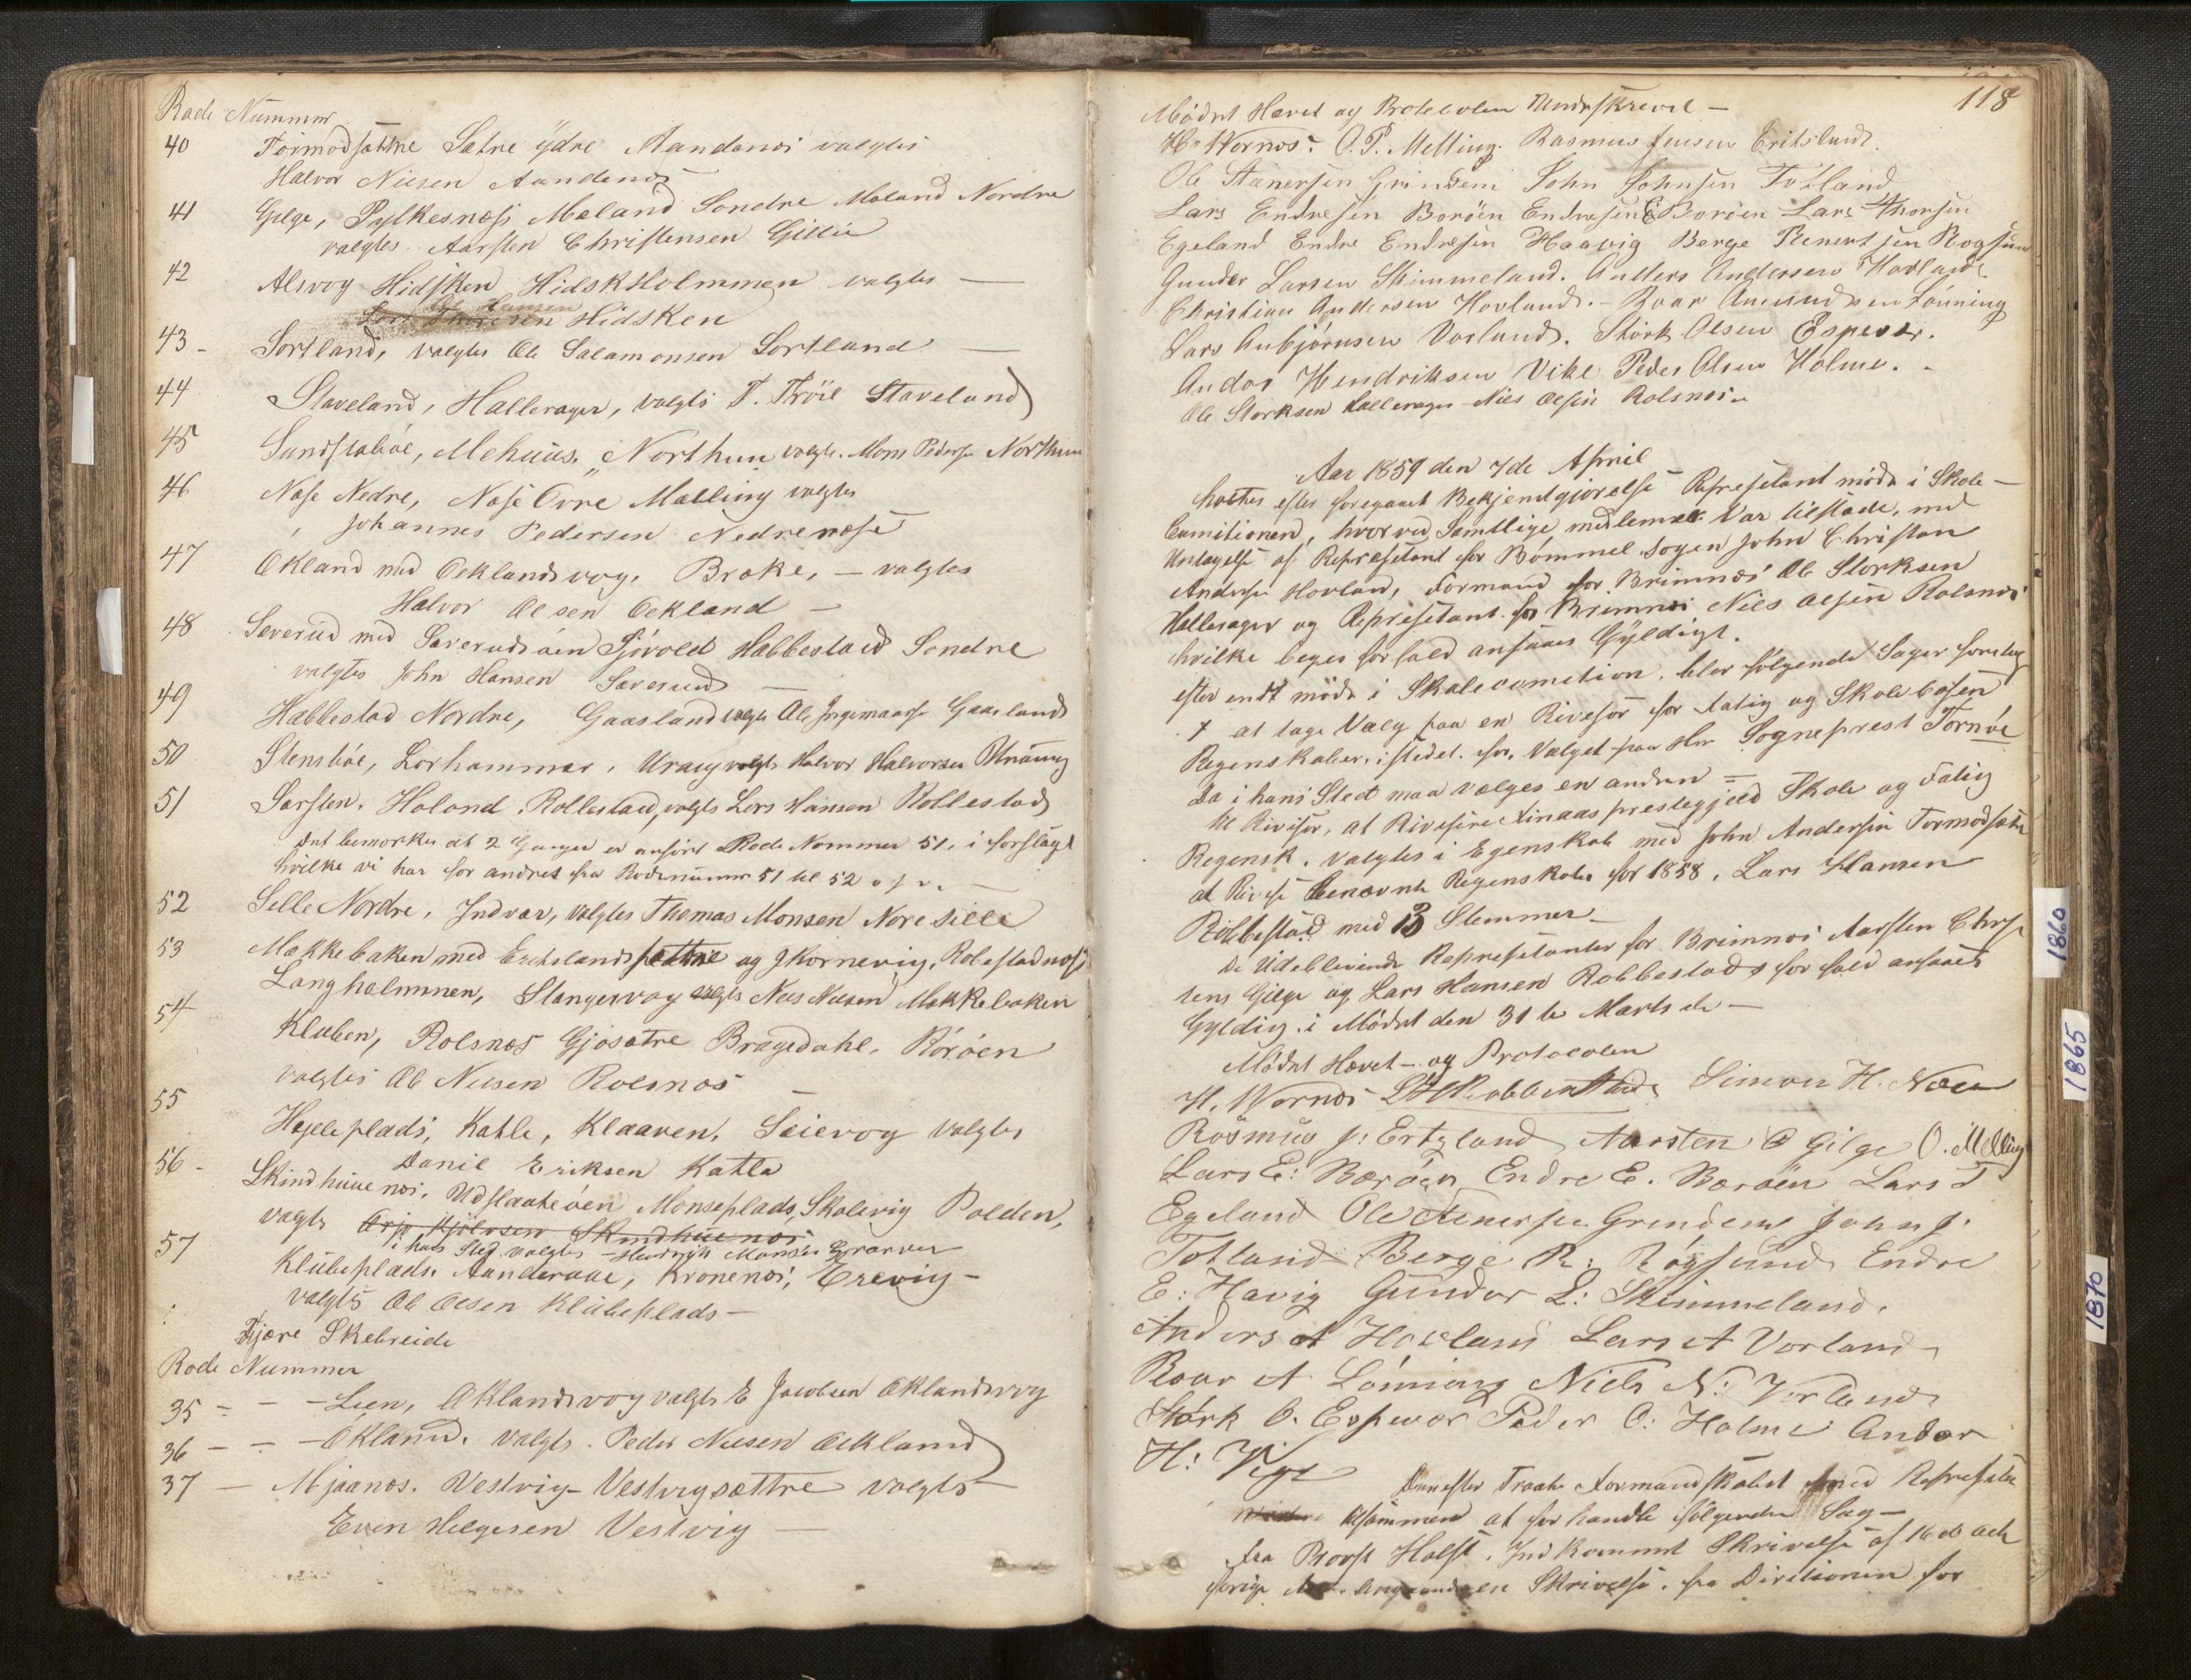 Rode Nummer
40 Tormodsættre Sætre ÿdre Aandanæs valgtes
Halvor Nilsen Aandenæs
41 Gilge, Pylkesnæss Mæland Søndre Mæland Nordre
valgtes Aarsten Christensen Gillie
42 Alsvog Hidsken HidskHolmmen valgtes —
Ole Hansen Hidsken
43 - Sortland, valgtes Ole Salamonsen Sortland —
44 Staveland, Halleragер, valgts T. Tröil Staveland
45 Sundstaböe, Mehuus, Northun valgts. Mons Peders. Northun
46 Næse Nedre, Næse Övre Mælling valgtes
Johannes Pedersen Nedrenæse
47 Økland med Øeklandsvog, Broke, — valgtes
Halvor Olsen Øekland —
48 Sæverud med Sæverudsöen Sjövold Habbestad Søndre
valgtes John Hansen Sæverud —
49 Habbestad Nordre, Gaasland valgts Ole Ingemaars. Gaasland
50 Stensböe, Lørhammer, Urang valgts Halvor Halvorsen Uraang
51 Sørsten, Holond, Rollestad, valgts Lars Hansen Rollestad
Det bemærkes at 2 Ganger er anført Rode Nommer 51, i forslaget
hvilke vi har forandret fra Rodenummr 51 til 52 o.s.v. —
52 Selle Nordre, Indvær, valgtes Thomas Monsen Nore Sille
53 Møkkebaken med Erikslandsættre og Skornevig, Robestadnæs
Langholmmen, Slangevaag valgts Niels Nilsen Møkkebaken
54 Kluben, Rolsnæs Gjøsætre Bragedahl, Rörøen
valgtes Ole Nilsen Rolsnæs —
55 Hegleplads, Katle, Klaaven, Seievog valgtes
Daniel Eriksen Katla
56 - Skindhuenæs, Udslaateöen Monseplads, Skalevig Polden,
valgts Skindhuenæs
i hans Sted valgtes Hendrik Monsen Grarver
57 Klubeplads, Aanderaae, Kronenæs, Erevig —
valgtes Ole Olsen Klubeplads —
Fjære Skebreide
Rode Nummer
35 - - - Lien, Øklandsvog valgts E Jacobsen Øklandsvog
36 - - - Økland, valgts. Peder Nilsen Øekland
37 — Mjaanæs. Vestvig Vestvigsættre valgts —
Even Helgesen Vestvig —
118
Mødet Hævet og Protocolen Underskrevet —
H. Wernøs. O. P. Melling. Rasmus Jensen Eritsland.
Ole Stanersen Grindem John Johnsen Totland
Lars Endresen Boröen Endresen E Boröen Lars Thorsen
Egeland Endre Endresen Haavig Berge Renertsen Rogsund
Gunder Larsen Skimmeland. Anders Andersen Hovland.
Christian Andersen Hovland. — Roar Amundsen Lönning
Lars Anbjörnsen Vorland. Störk Olsen Espevær.
Andor Hendriksen Vike Peder Olsen Holme. -
Ole Storksen Hallerager Niels Olsen Rolsnæs.
Aar 1859 den 7de April
holtes efter foregaaet Bekjendtgjørelse Represetant møde i Skole-
Comitionen, hvorved Samtlige medlemmer var tilstæde, med
Untagelse af Represetant for Bömmel sogen John Christian
Andersen Hovland, Formand for Brimnæs Ole Storksen
Hallerager og Represetant for Brimnæs Niels Olsen Rolsnæs
hvilke beges forfald ansaaes Gÿldigt.
efter endt møde i Skolecomition, blev følgende Sager foretag
1 at tage Valg paa en Rivesor for Fatig og Skolekasen
Regenskaber, istedet for, Valget paa Hr. Sogneprest Tornöe
da i hans Sted maa vælges en anden =
til Rivisor, at Rivisere Finaas prestegjeld Skole og Fatig
Regensk. valgtes i Egenskab med John Andersen Tormodsæte
at Rivise benævnte Regenskaber for 1858, Lars Hansen
Robbestad med 13 Stemmer —
De Udeblivende Represetanter for Brimnæs Aarsten Chris
tens Gilge og Lars Hansen Robbestads forfald ansaaes
Gyldig, i Mødet den 31te Marts de —
Mødet Hævet — og Protocolen
H. Wernøs L H Robbestad Simon H. Næss
Rösmus J: Ertzland Aarsten C Gilge O. Melling
Lars E: Børöen Endre E. Børöen Lars T
Egeland Ole Stenersen Grindem John J.
Totland Berge R: Rögsund Endre
E: Havig Gunder L: Skimmeland,
Anders A Hovland Lars A Vorland
Roar A Lönning Niels N: Vorland
Störk O. Espevær Peder O: Holme Andor
H: Vige
Derefter Traate Formandskabet med Represeta
tilsammen at forhandle følgende Sag —
fra Provst Holst, Indkommet Skrivelse af 16de
forige angaaende en Skrivelse, fra Diretionen for
1860
1865
1870